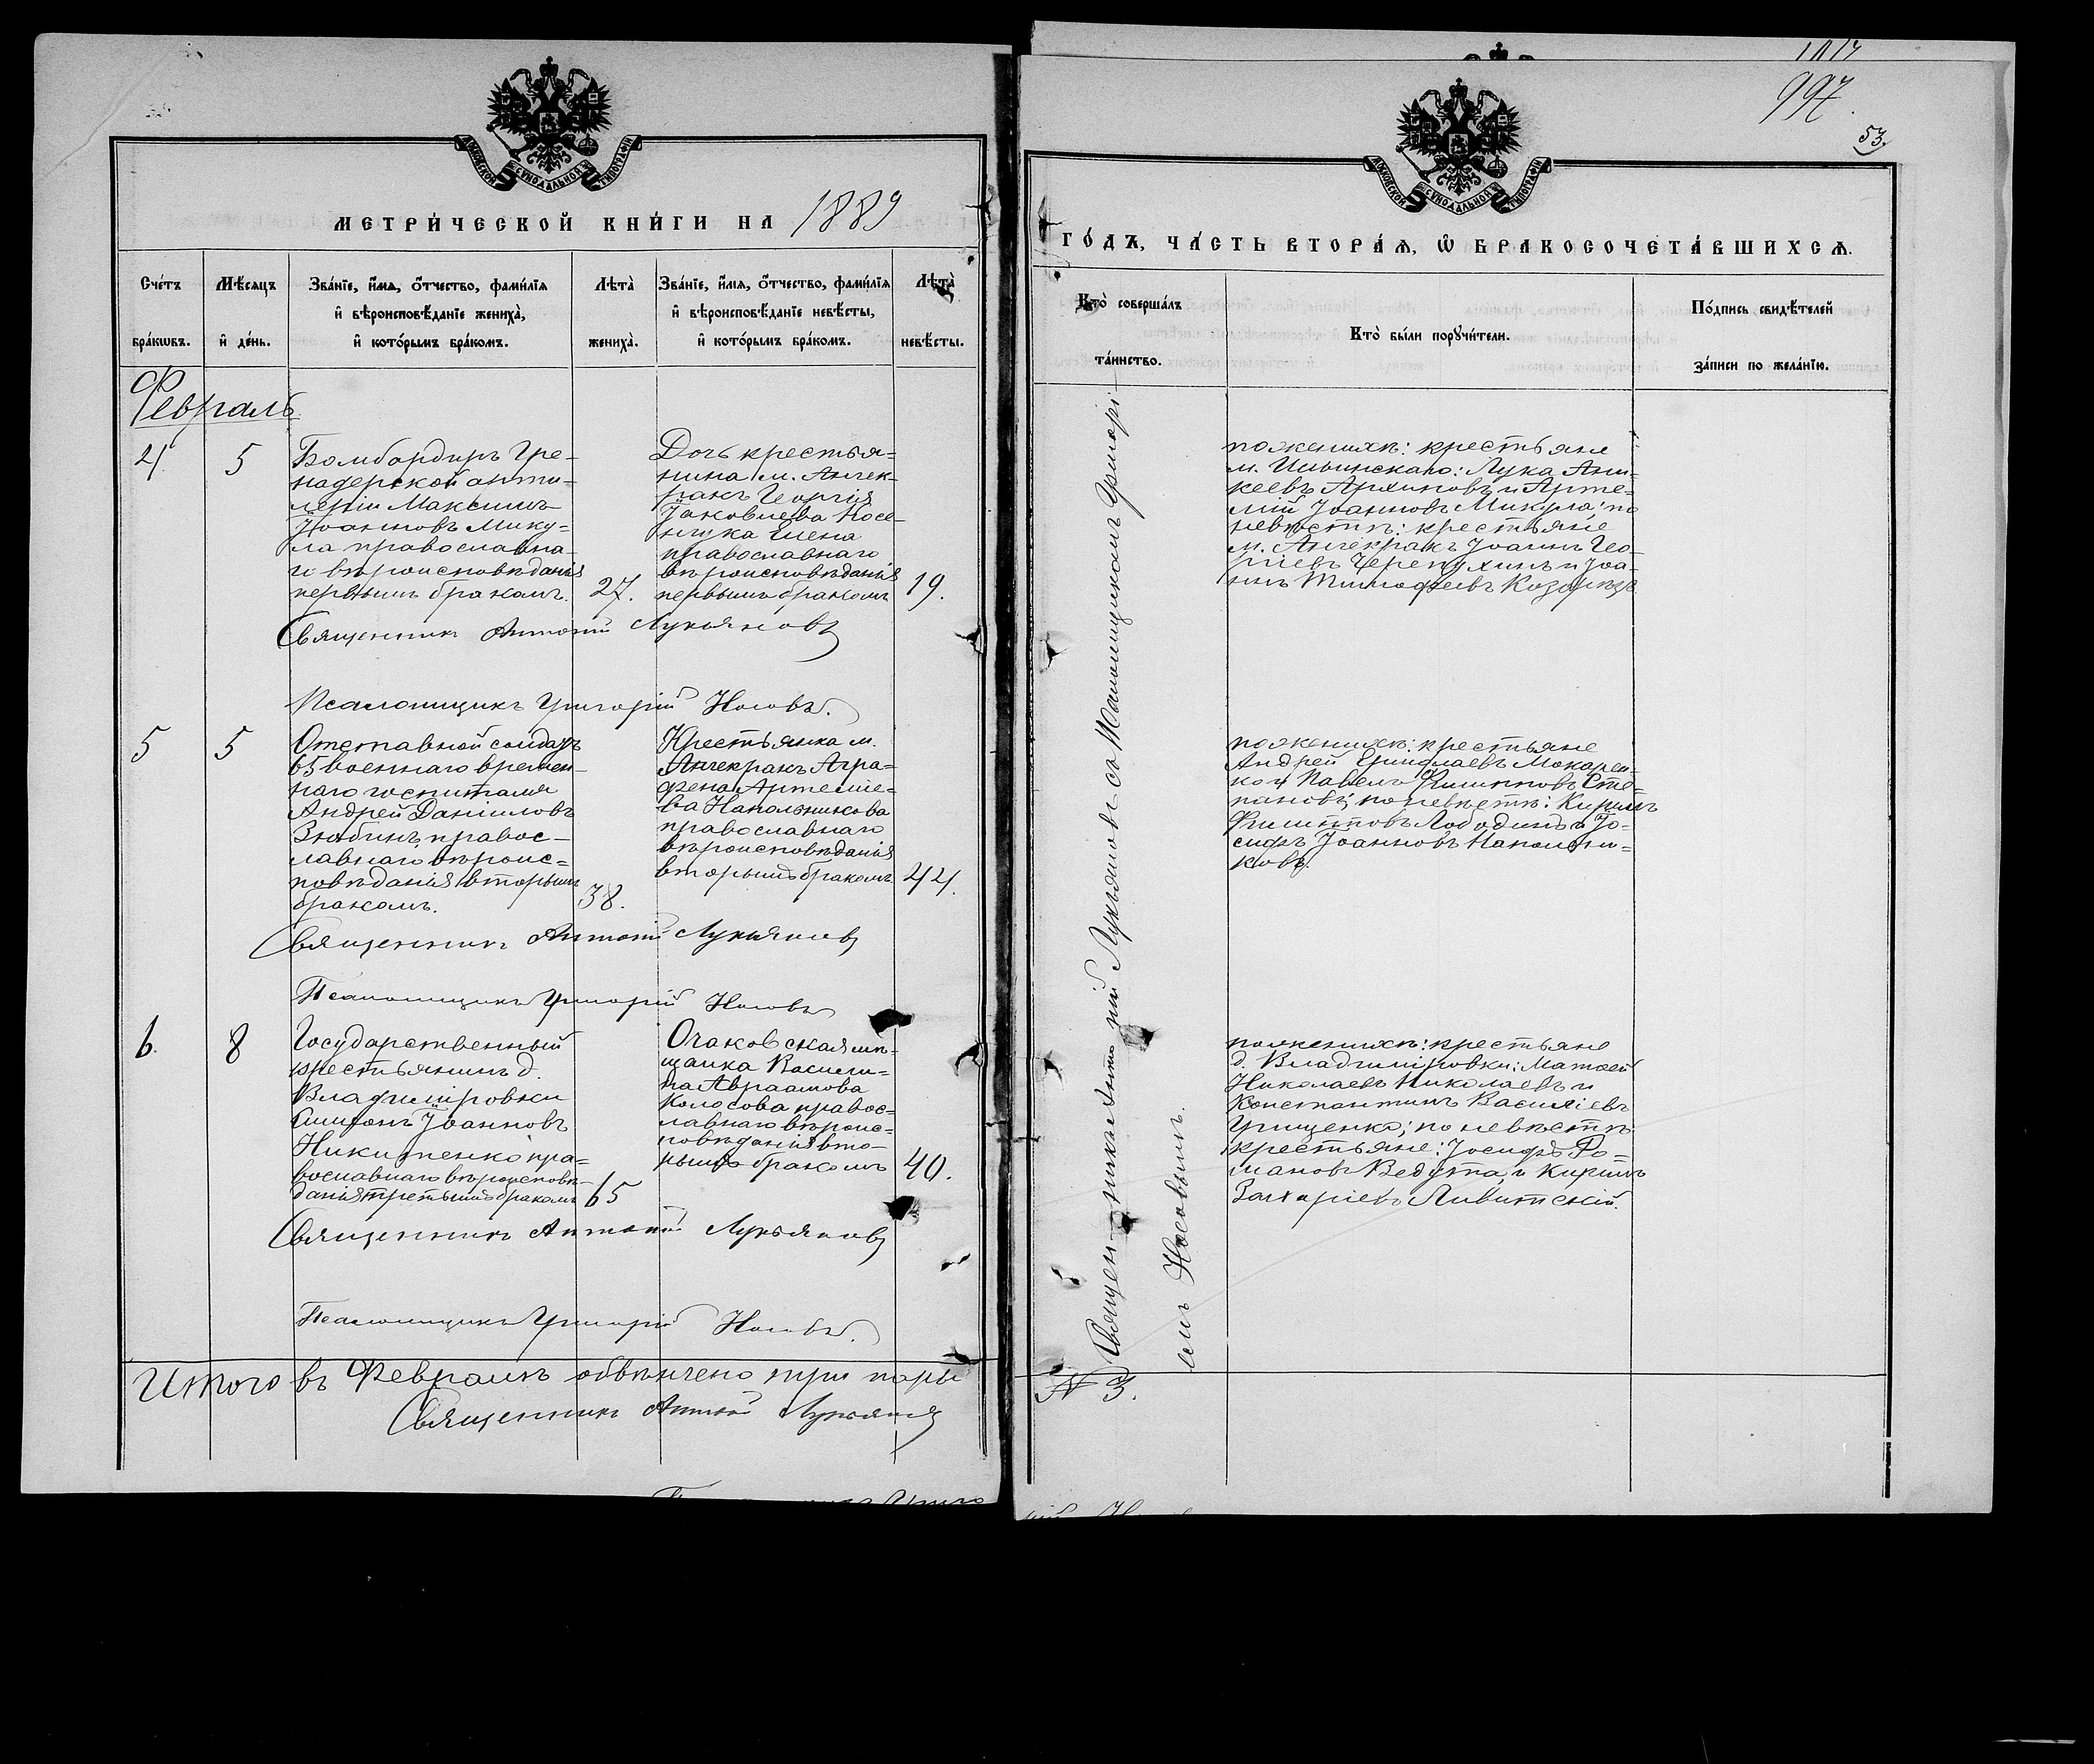 МОСКОВСКОЙ СѴНОДАЛЬНОЙ ТИПОГРАФІИ
МЕТРИ́ЧЕСКОЙ КНИ́ГИ НА 1889
Сче́тъ бра́кѡвъ.
Мѣ́сяцъ и҆ де́нь.
Зва́нїе, и҆́мѧ, ѻ҆́тчество, фами́лїѧ и҆ вѣроисповѣ́данїе жениха̀, и҆ кото́рымъ бра́комъ.
Лѣта̀ жениха̀.
Зва́нїе, и҆́мѧ, ѻ҆́тчество, фами́лїѧ и҆ вѣроисповѣ́данїе невѣ́сты, и҆ кото́рымъ бра́комъ.
Лѣта̀ невѣ́сты.
Февраль
4
5
Бомбардиръ Гре-
надерской арти-
леріи Максимъ
Іоанновъ Мику-
ла православна-
го вѣроисповѣданія
первымъ бракомъ.
27.
Дочь крестья-
нина м. Анчек-
ракъ Георгія
Іаковлева Косе-
нчука Елена
православнаго
вѣроисповѣданія
первымъ бракомъ
19.
Священникъ Антоній Лукьяновъ
Псаломщикъ Григорій Носовъ.
5
5
Отставной солдатъ
65 военнаго времен-
наго госпиталя
Андрей Даніиловъ
Зюбинъ, правос-
лавнаго вѣроис-
повѣданія вторымъ
бракомъ.
38.
Крестьянка м.
Анчекракъ Агра-
фена Артемie-
ва Наполъникова
православнаго
вѣроисповѣданія
вторымъ бракомъ
44.
Священникъ Антоній Лукьяновъ
Псаломщикъ Григорій Носовъ
6.
8
Государственный
крестьянинъ д.
Владиміровки
Симеонъ Іоанновъ
Никитенко пра-
вославнаго вѣроисповѣ-
данія третьимъ бракомъ
65
Очаковская мѣ-
щанка Васили-
са Авраамова
Колосова правос-
лавнаго вѣроис-
повѣданія вто-
рымъ бракомъ
40.
Священникъ Антоній Лукьяновъ
Псаломщикъ Григорій Носовъ.
Итого въ Февралѣ обвѣнчено три пары
Священникъ Антоній Лукьяновъ
997.
53.
МОСКОВСКОЙ СѴНОДАЛЬНОЙ ТИПОГРАФІИ
ГО́ДЪ, ЧА́СТЬ ВТОРА́Ѧ, Ѽ БРАКОСОЧЕТА́ВШИХСѦ.
Кто̀ соверша́лъ та́инство.
Кто̀ бы́ли порꙋчи́тели.
По́дпись свидѣ́телей за́писи по жела́нїю.
Священникъ Антоній Лукьяновъ съ Псаломщикомъ Григорі-
емъ Носовымъ.
по женихѣ: крестьяне
м. Ильинскаго: Лука Ани-
кеевъ Архиповъ и Арте-
мій Іоанновъ Микула; по
невѣстѣ: крестьяне
м. Анчекракъ Іоаннъ Гео-
ргіевъ Черепухинъ и Іоа-
ннъ Тимофеевъ
по женихѣ: крестьяне
Андрей Ермолаевъ Макарен-
ко и Павелъ Филипповъ Сте-
пановъ; по невѣстѣ: Кириллъ
Филипповъ Лободинъ и Іо-
сифъ Іоанновъ Наполъни-
ковъ.
по женихѣ: крестьяне
д. Владиміровки: Матвей
Николаевъ Николаевъ и
Константинъ Василіевъ
Грищенко; по невѣстѣ
крестьяне: Іосифъ Ро-
мановъ Ведута, и Кириллъ
Захаріевъ Ливитскій.
№ 3.